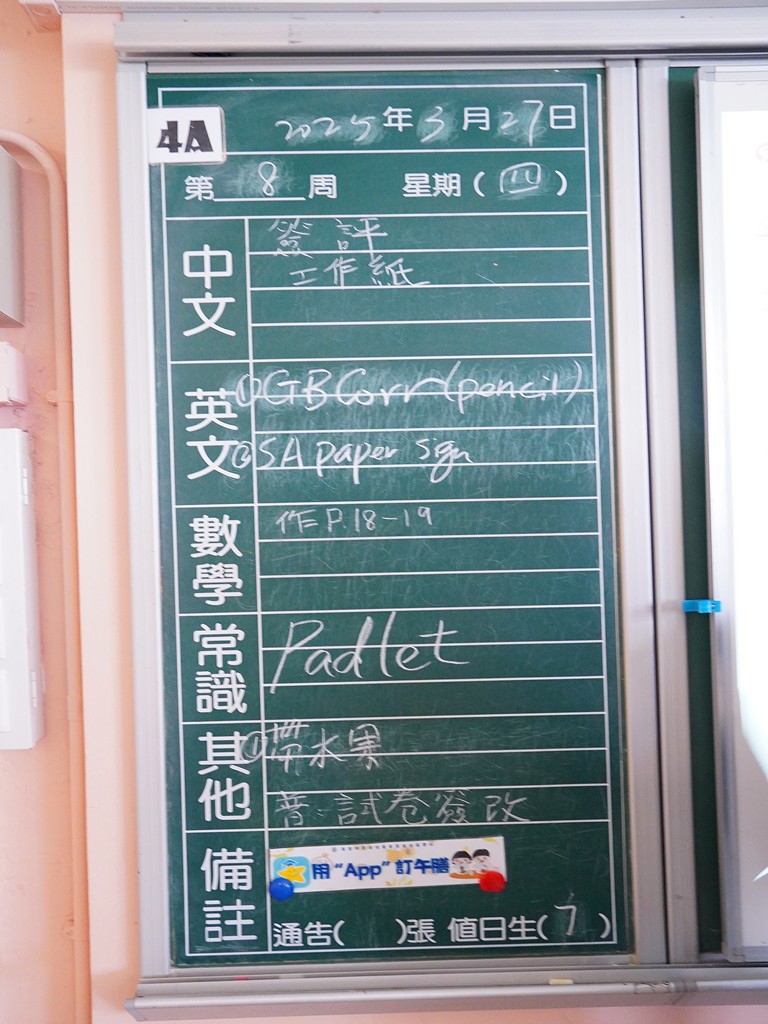 4A
2025年3月27日
第 8 周 星期(四)
中文
簽評
工作紙
英文
①GB Corr (pencil)
②SA paper sign
數學
作P.18-19
常識
Padlet
其他
①帶水果
普:試卷簽改
備註
用“App”訂午膳
通告( )張 值日生(7)